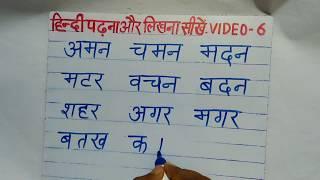 हिन्दी पढ़ना और लिखना सीखें. VIDEO-6
अमन चमन मदन
मटर वचन बदन
शहर अगर मगर
बतख क